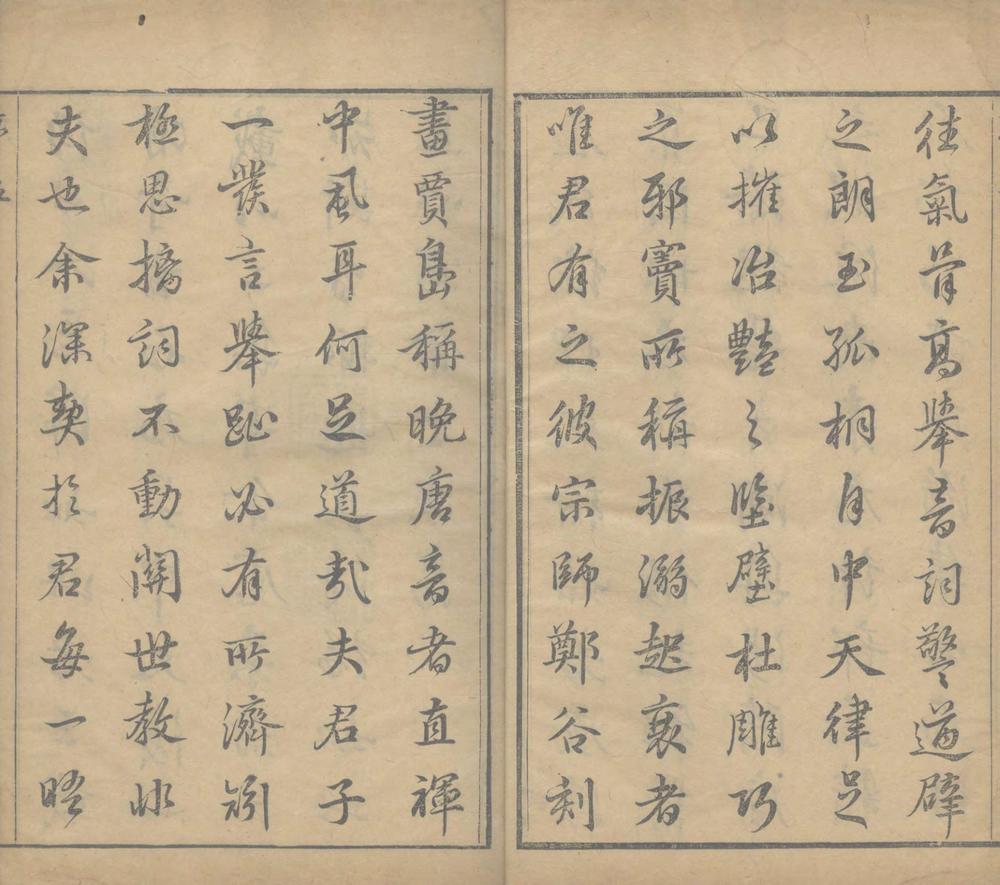 往氣骨高舉音詞警遒辟
之朗玉孤桐自中天律足
以摧冶豔之墜壁杜雕巧
之邪竇所稱振溺起衰者
唯君有之彼宗師鄭谷刻
畫賈島稱晚唐音者直禆
中風耳何足道哉夫君子
一發言舉趾必有所濟矧
極思摛詞不動關世教非
夫也余深契於君每一晤